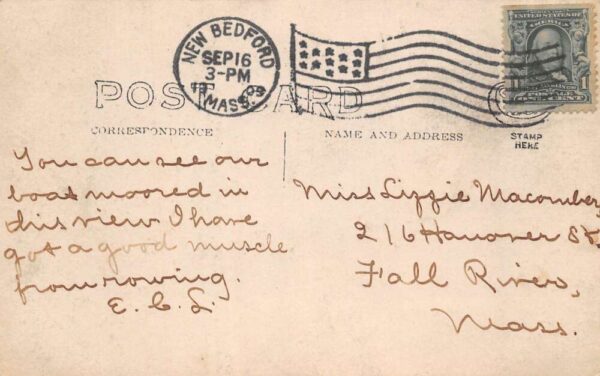 NEW BEDFORD
SEP 16
3-PM
MASS.
POST CARD
CORRESPONDENCE
NAME AND ADDRESS
STAMP
HERE
You can see our
boat moored in
this view I have
got a good muscle
from rowing.
E. C. L.
Miss Lizzie Macomber
216 Hanover St,
Fall River,
Mass.